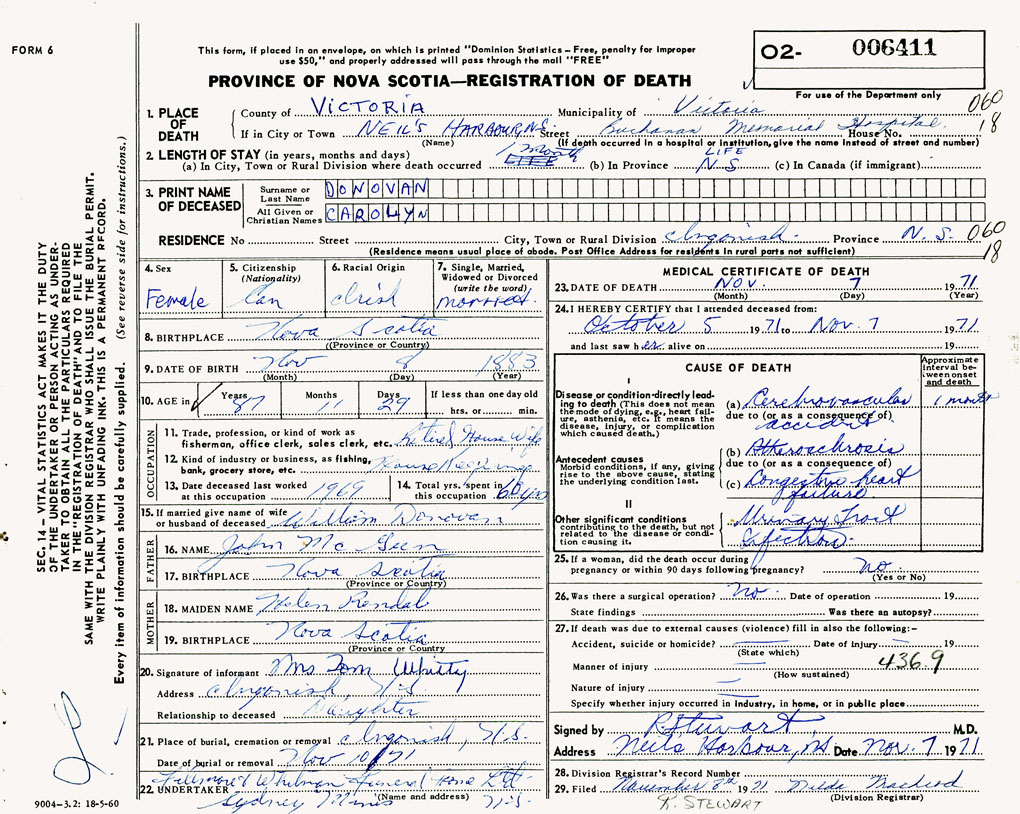 FORM 6
This form, if placed in an envelope, on which is printed "Dominion Statistics – Free, penalty for improper
use $50," and properly addressed will pass through the mail "FREE"
O2- 006411
For use of the Department only
PROVINCE OF NOVA SCOTIA—REGISTRATION OF DEATH
SEC. 14 – VITAL STATISTICS ACT MAKES IT THE DUTY
OF THE UNDERTAKER OR PERSON ACTING AS UNDER-
TAKER TO OBTAIN ALL THE PARTICULARS REQUIRED
IN THE "REGISTRATION OF DEATH" AND TO FILE THE
SAME WITH THE DIVISION REGISTRAR WHO SHALL ISSUE THE BURIAL PERMIT.
WRITE PLAINLY WITH UNFADING INK. THIS IS A PERMANENT RECORD.
Every item of information should be carefully supplied. (See reverse side for instructions.)
1. PLACE OF DEATH
County of VICTORIA Municipality of Victoria 060
If in City or Town NEIL'S HARBOUR NS. Street Buchanan Memorial Hospital House No. 18
(Name) (If death occurred in a hospital or institution, give the name instead of street and number)
2. LENGTH OF STAY (in years, months and days) 1 month LIFE
(a) In City, Town or Rural Division where death occurred LIFE (b) In Province N.S. (c) In Canada (if immigrant)
3. PRINT NAME OF DECEASED
Surname or Last Name DONOVAN
All Given or Christian Names CAROLYN
RESIDENCE No Street City, Town or Rural Division Ingonish Province N.S. 060
(Residence means usual place of abode. Post Office Address for residents in rural parts not sufficient) 18
4. Sex Female
5. Citizenship (Nationality) Can
6. Racial Origin Irish
7. Single, Married, Widowed or Divorced (write the word) married.
8. BIRTHPLACE Nova Scotia
((Province or Country)
9. DATE OF BIRTH Nov 8 1883
(Month) (Day) (Year)
10. AGE in Years 87 Months 11 Days 29 If less than one day old
hrs. or min.
OCCUPATION
11. Trade, profession, or kind of work as
fisherman, office clerk, sales clerk, etc. Retired House Wife
12. Kind of industry or business, as fishing,
bank, grocery store, etc. House Keeping
13. Date deceased last worked at this occupation 1969
14. Total yrs. spent in this occupation 60 yrs
15. If married give name of wife or husband of deceased William Donovan
FATHER
16. NAME John Mc Geen
17. BIRTHPLACE Nova Scotia
(Province or Country)
MOTHER
18. MAIDEN NAME Helen Kendal
19. BIRTHPLACE Nova Scotia
(Province or Country
20. Signature of informant Mrs Tom Whitty
Address Ingonish, N.S.
Relationship to deceased Daughter
21. Place of burial, cremation or removal Ingonish, N.S.
Date of burial or removal Nov 10/71
22. UNDERTAKER Fillmore & Whitman Funeral Home Ltd
Sydney Mines N.S.
(Name and address)
9004–3.2: 18-5-60
MEDICAL CERTIFICATE OF DEATH
23. DATE OF DEATH NOV. 7 1971
(Month) (Day) (Year)
24. I HEREBY CERTIFY that I attended deceased from:
October 5 1971 to Nov. 7 1971
and last saw her alive on 19
CAUSE OF DEATH
Approximate interval be-tween onset and death
I
Disease or condition directly lead-
ing to death (This does not mean
the mode of dying, e.g., heart fail-
ure, asthenia, etc. It means the
disease, injury, or complication
which caused death.)
(a) Cerebrovascular 1 month
due to (or as a consequence of)
accident
Antecedent causes
Morbid conditions, if any, giving
rise to the above cause, stating
the underlying condition last.
(b) Atherosclrosis
due to (or as a consequence of)
(c) Congestive heart
failure
II
Other significant conditions
contributing to the death, but not
related to the disease or condi-
tion causing it.
Urinary Tract
Infection.
25. If a woman, did the death occur during
pregnancy or within 90 days following pregnancy? no.
(Yes or No)
26. Was there a surgical operation? no. Date of operation 19
State findings Was there an autopsy?
27. If death was due to external causes (violence) fill in also the following:–
Accident, suicide or homicide? Date of injury 19
(State which)
Manner of injury 436.9
(How sustained)
Nature of injury
Specify whether injury occurred in industry, in home, or in public place
Signed by R. Stewart M.D.
Address Neils Harbour, NS Date Nov. 7 1971
28. Division Registrar's Record Number
29. Filed November 8th 1971 Hilda MacLeod
(Division Registrar)
R. STEWART